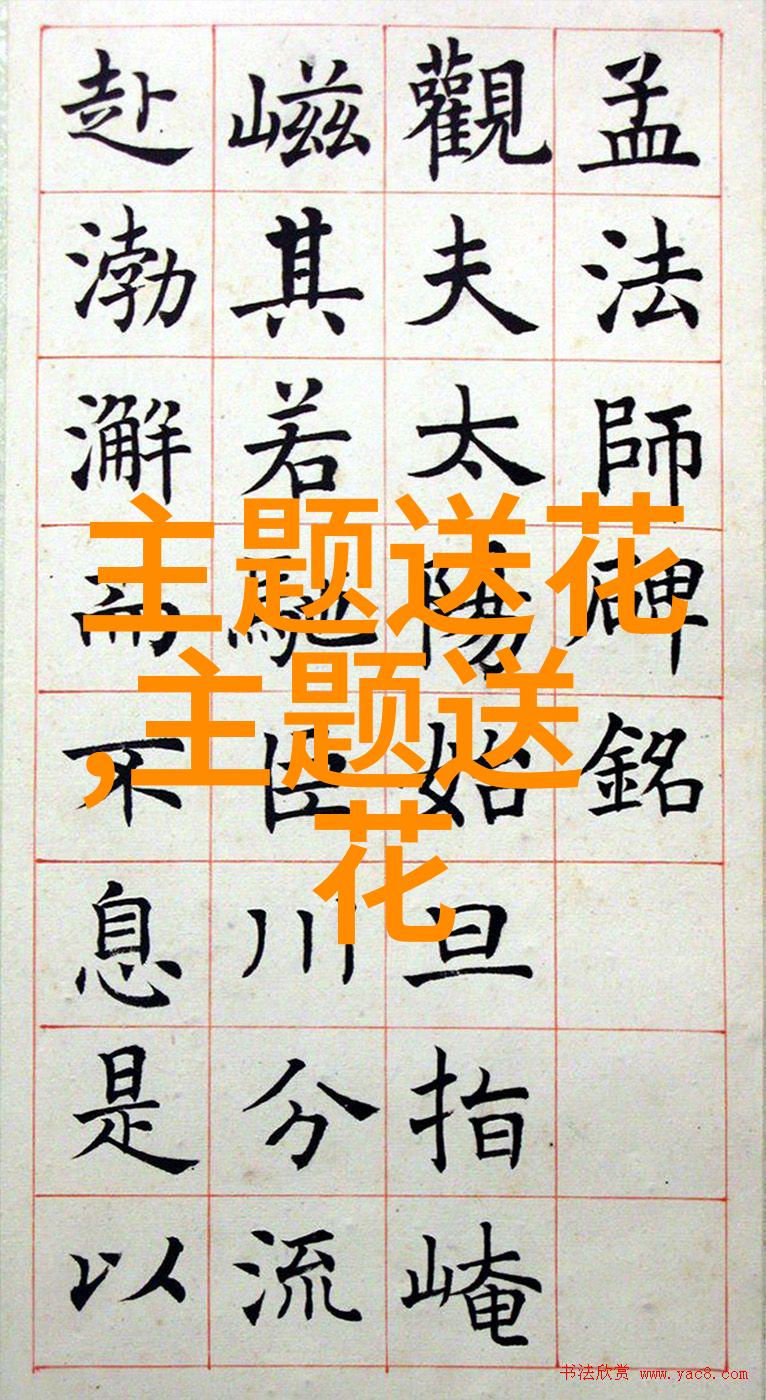 孟法師碑銘
觀夫太陽始旦指崦
嵫其若馳臣川分流
赴渤澥而不息是以
主题送花
,主题送
花
书法欣赏 www.yac8.com